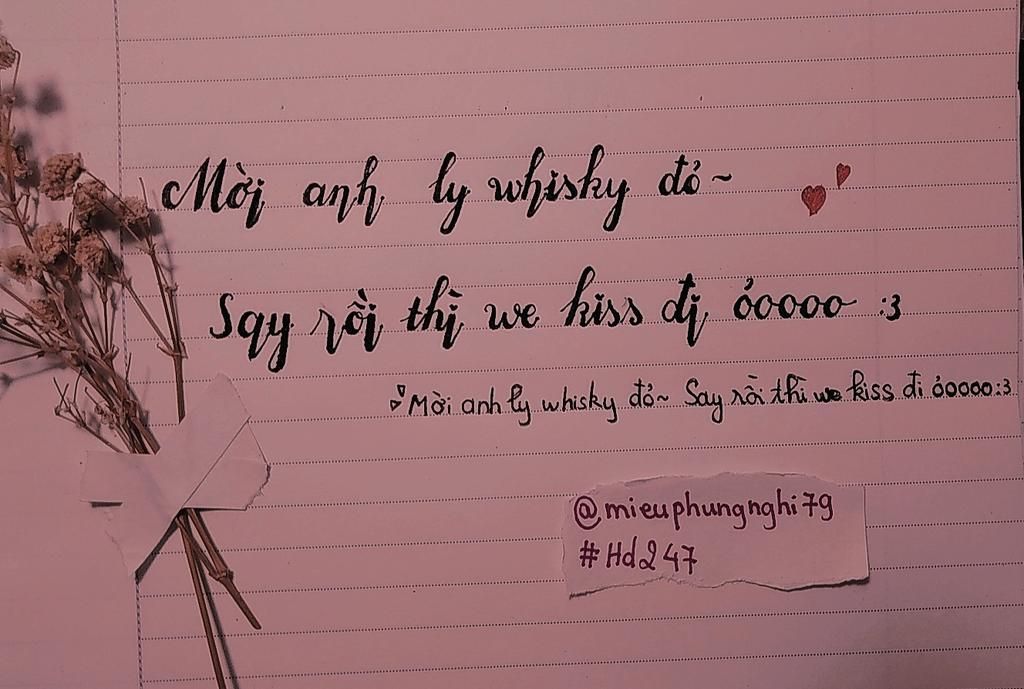 Mời anh ly whisky đỏ~
Say rồi thì we kiss đi ỏoooo :3
Mời anh ly whisky đỏ~ Say rồi thì we kiss đi ỏoooo:3
@mieuphungnghi79
#Hd247